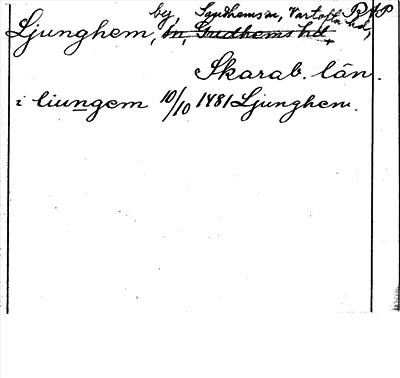 by, Sandhems sn, Vartofta hd, BAP
Ljunghem, sn, Gudhems hd,
Skarab. län.
i liungem 10/10 1481 Ljunghem.